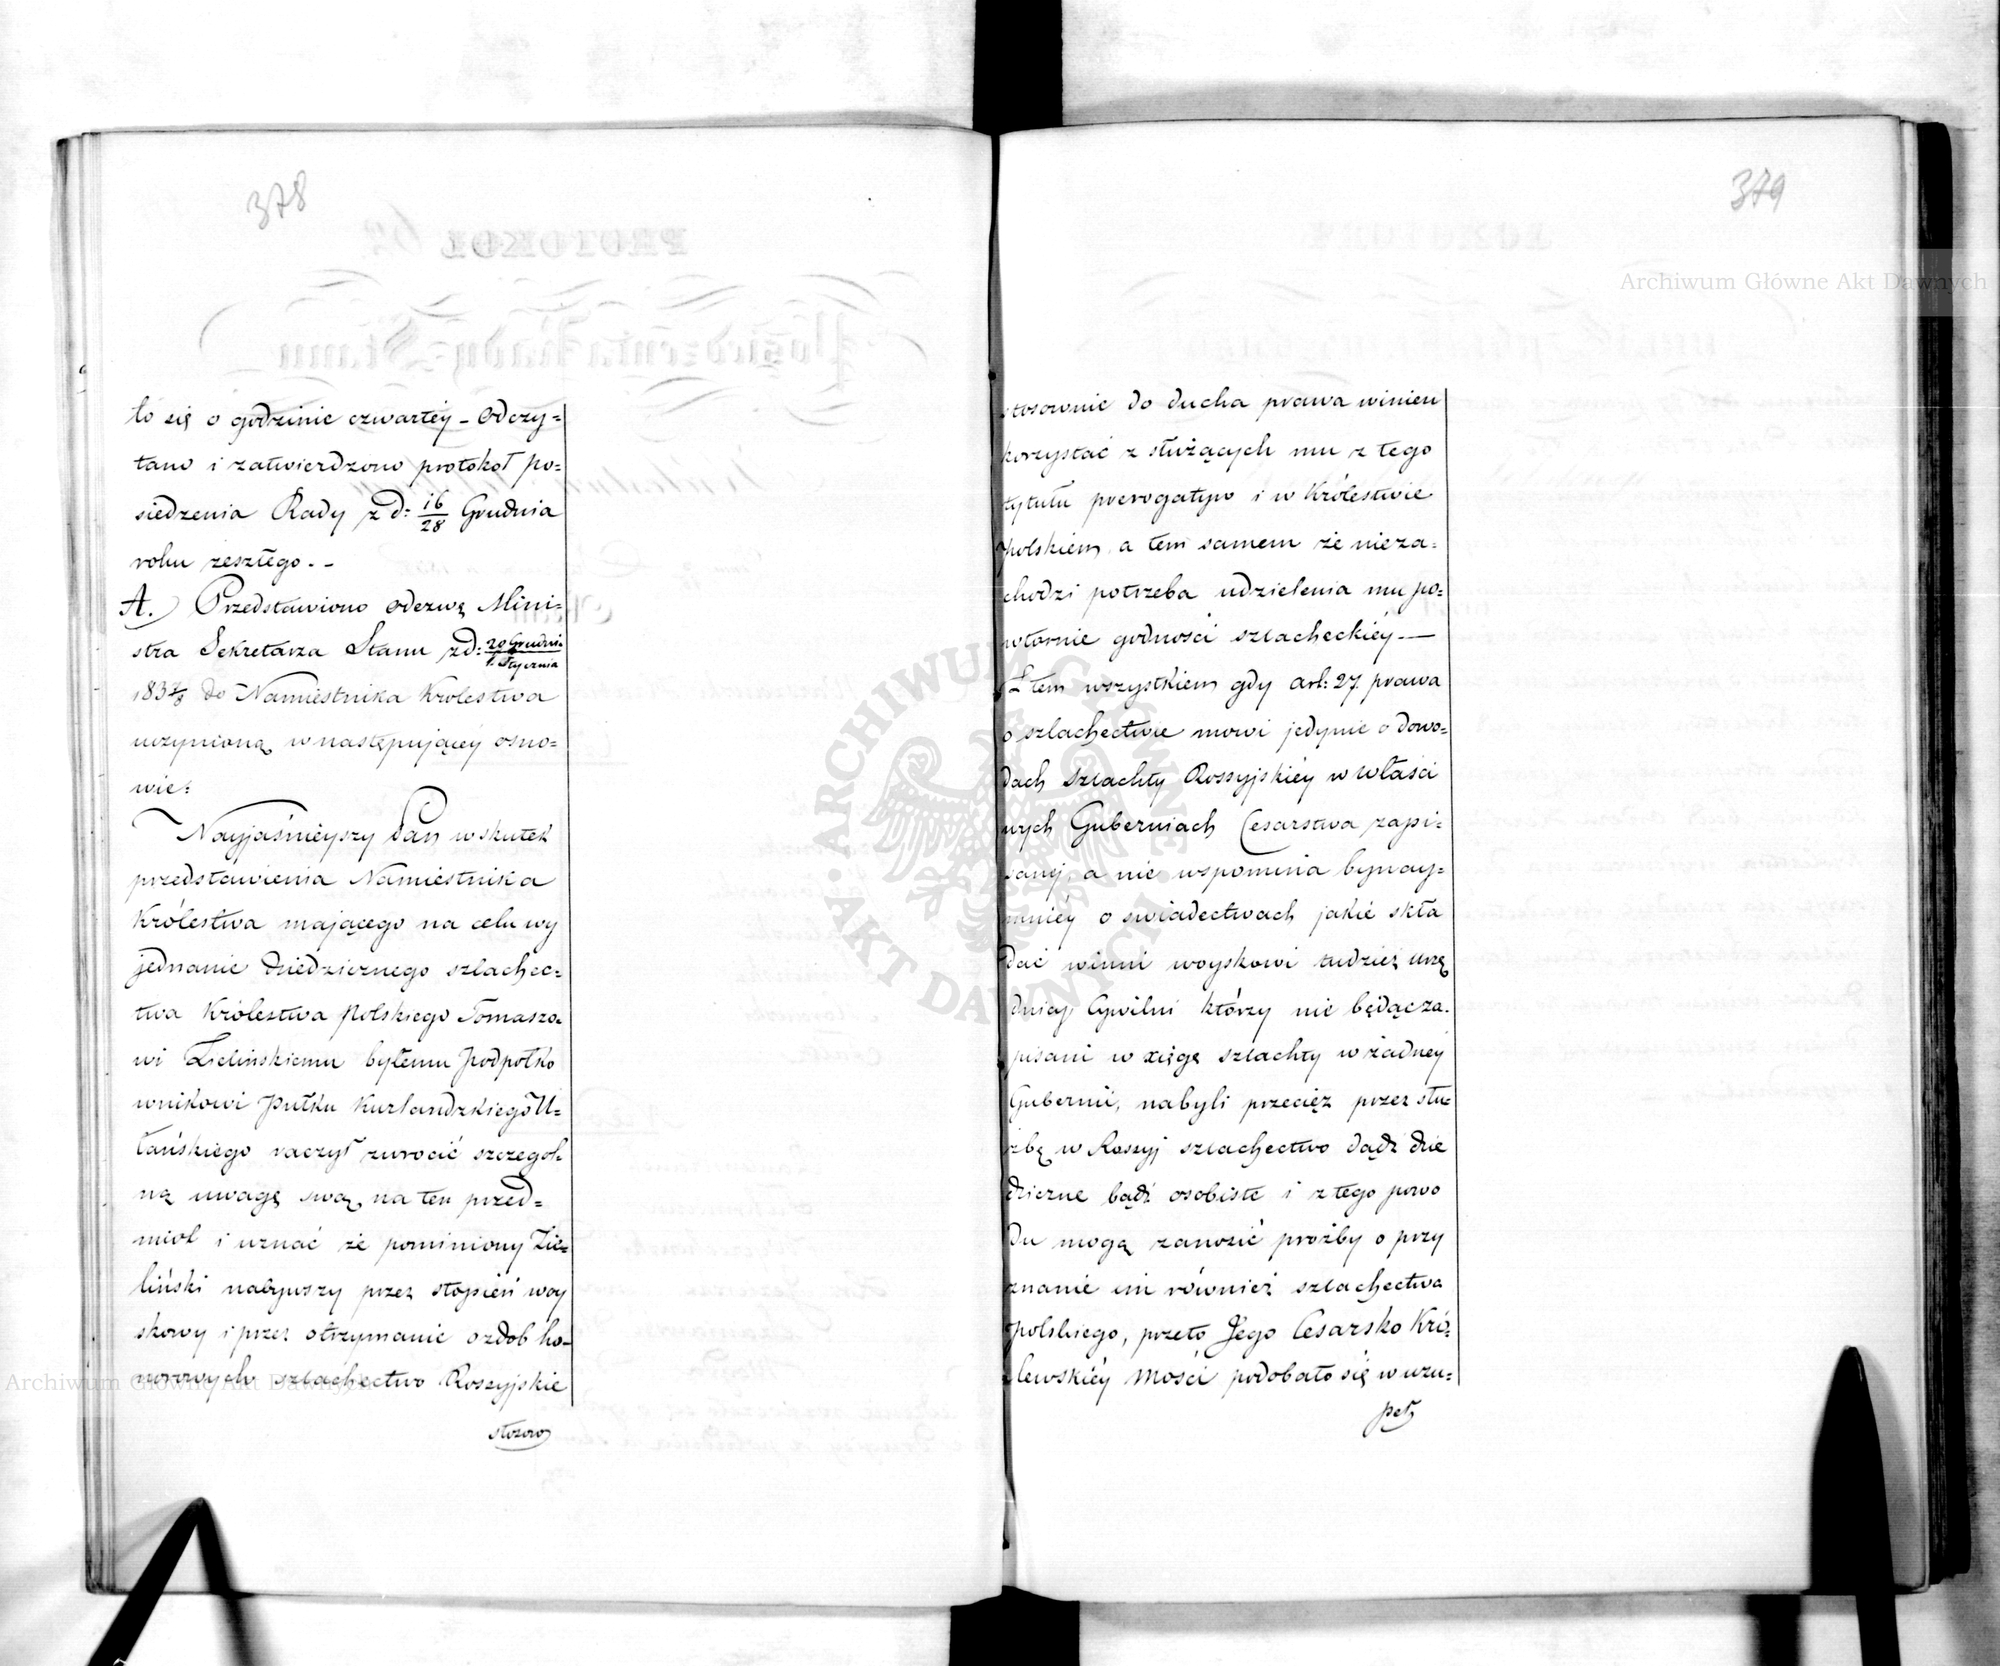 378
to się o godzinie czwartéy – Odczy=
tano i zatwierdzono protokoł po=
siedzenia Rady z d: 16/28 Grudnia
roku zeszłego. –
A.) Przedstawiono odezwę Mini=
stra Sekretarza Stanu z d: 20 Grudnia/1. Stycznia
1837/8 do Namiestnika Krolestwa
uczynioną w następującey osno=
wie:
Nayjaśnieyszy Pan w skutek
przedstawienia Namiestnika
Królestwa mającego na celu wy
jednanie dziedzicznego szlachec=
twa Królestwa Polskiego Tomaszo=
wi Zielińskiemu byłemu Podpołko
wnikowi Pułku Kurlandzkiego U=
łańskiego raczył zwrocić szczegol=
ną uwagę swą na ten przed=
miot i uznać że pominiony Zie=
liński nabywszy przez stopień woy
skowy i przez otrzymanie ozdob ho=
norowych szlachectwo Rossyjskie
stosow
379
stosownie do ducha prawa winien
korzystać z służących mu z tego
tytułu prerogatyw i w Królestwie
Polskiem, a tem samem że nieza=
chodzi potrzeba udzielenia mu po=
wtornie godności szlacheckiéy —
Z tem wszystkiem gdy art: 27 prawa
o szlachectwie mowi jedynie o dowo=
dach szlachty Rossyjskiéy w właści
wych Guberniach Cesarstwa zapi=
saney, a nie wspomina bynay=
mniéy o swiadectwach jakie skła
dać winni woyskowi tudzież urzę
dnicy Cywilni którzy nie będąc za=
pisani w xięgę szlachty w żadney
Gubernii, nabyli przecięż przez słu=
żbę w Rossyj szlachectwo bądź dzie
dziczne bądź osobiste i z tego powo
du mogą zanosić prożby o przy
znanie im również szlachectwa
Polskiego, przeto Jego Cesarsko Kró=
lewskiéy Mości podobało się w uzu=
peł
Archiwum Główne Akt Dawnych
ARCHIWUM GŁÓWNE · AKT DAWNYCH ·
Archiwum Główne Akt Dawnych